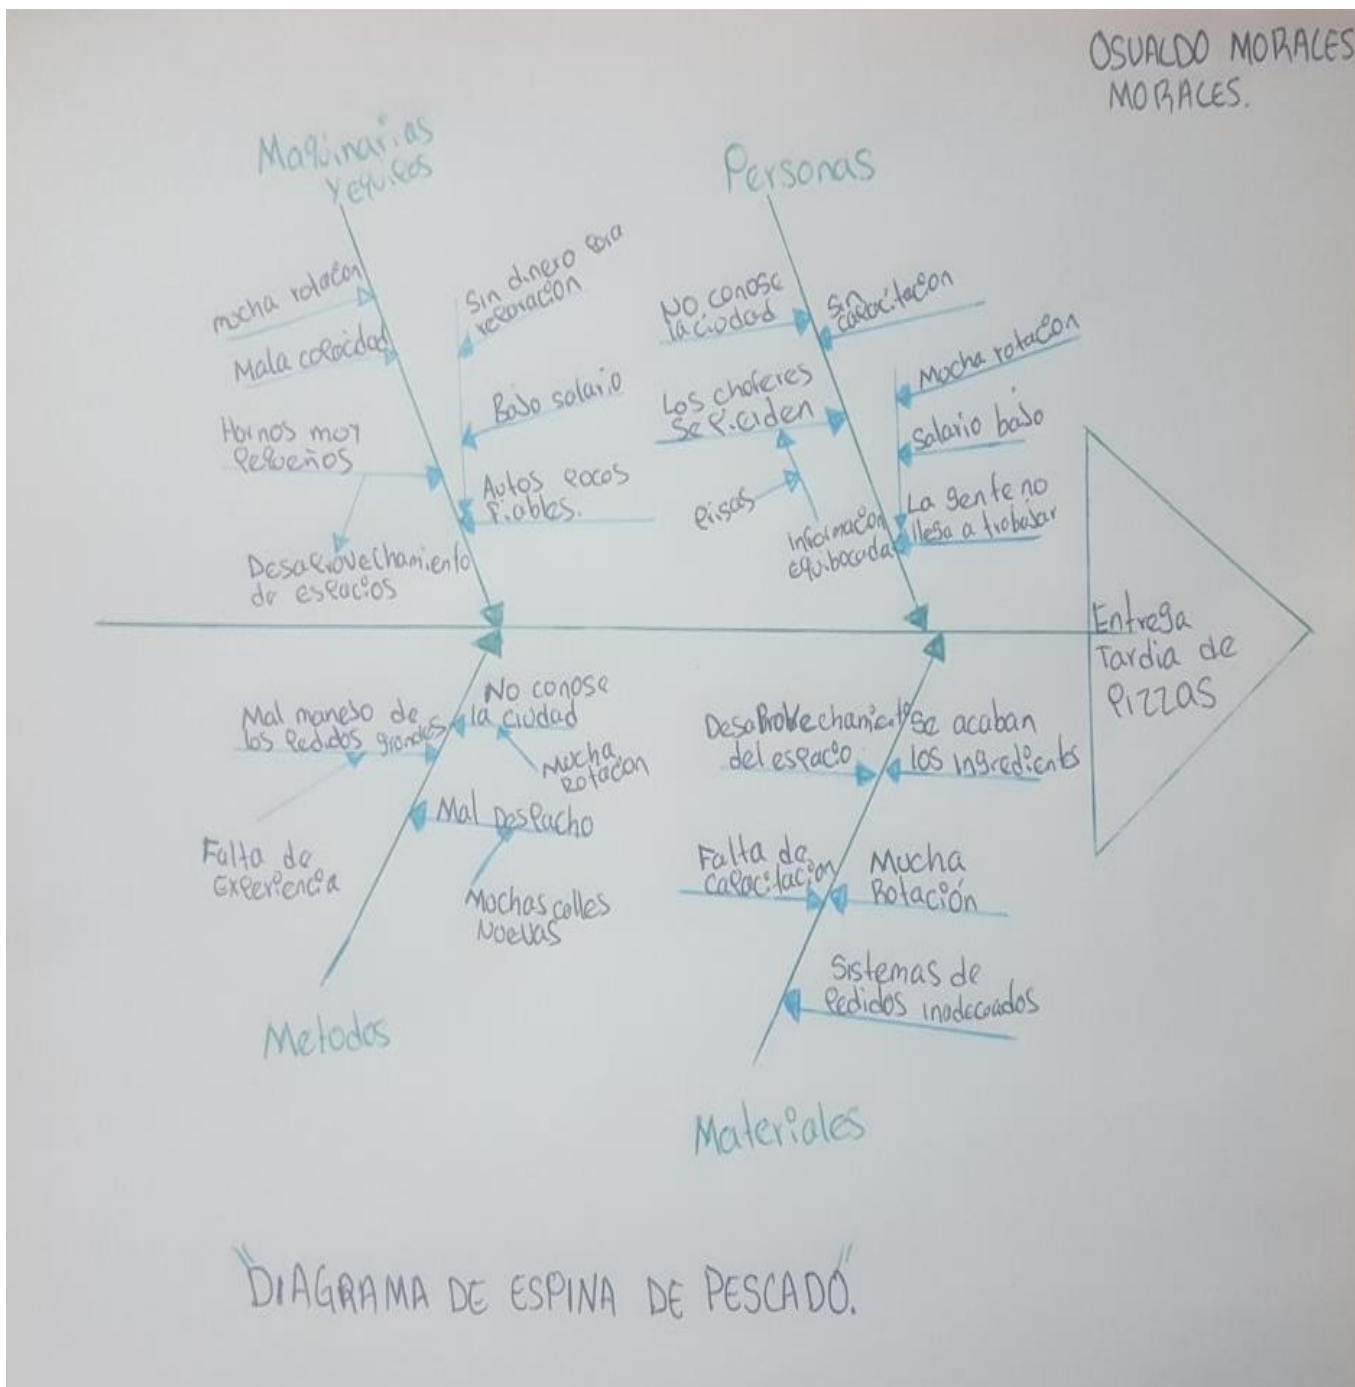 OSVALDO MORALES
MORALES.
Maquinarias
y equipos
Personas
mucha rotacion
Mala capacidad
Hornos muy
Pequeños
Desaprovechamiento
de espacios
Sin dinero para
reparación
Bajo salario
Autos pocos
fiables.
No conose
la ciudad
Sin
capacitacion
Los choferes
Se Pierden
Pisas
Informacion
equibocada
Mucha rotacion
Salario bajo
La gente no
llega a trabajar
Entrega
Tardia de
Pizzas
Mal manejo de
los Pedidos grandes
Falta de
Experiencia
No conose
la ciudad
Mucha
Rotacion
Mal Despacho
Muchas calles
Nuevas
Metodos
Desaprovechamiento
del espacio
Se acaban
los ingredients
Falta de
Capacitacion
Mucha
Rotación
Sistemas de
Pedidos inadecuados
Materiales
"DIAGRAMA DE ESPINA DE PESCADO".